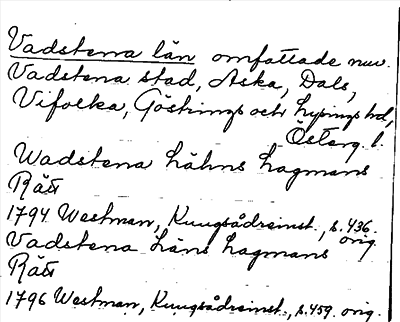 Vadstena län omfattade nuv.
Vadstena stad, Aska, Dals,
Vifolka, Göstrings och Lysings hd,
Österg. l.
Wadstena Lähns Lagmans
Rätt
1794 Westman, Kungsådreinst., s. 436. orig.
Vadstena Läns Lagmans
Rätt
1796 Westman, Kungsådreinst., s. 459. orig.